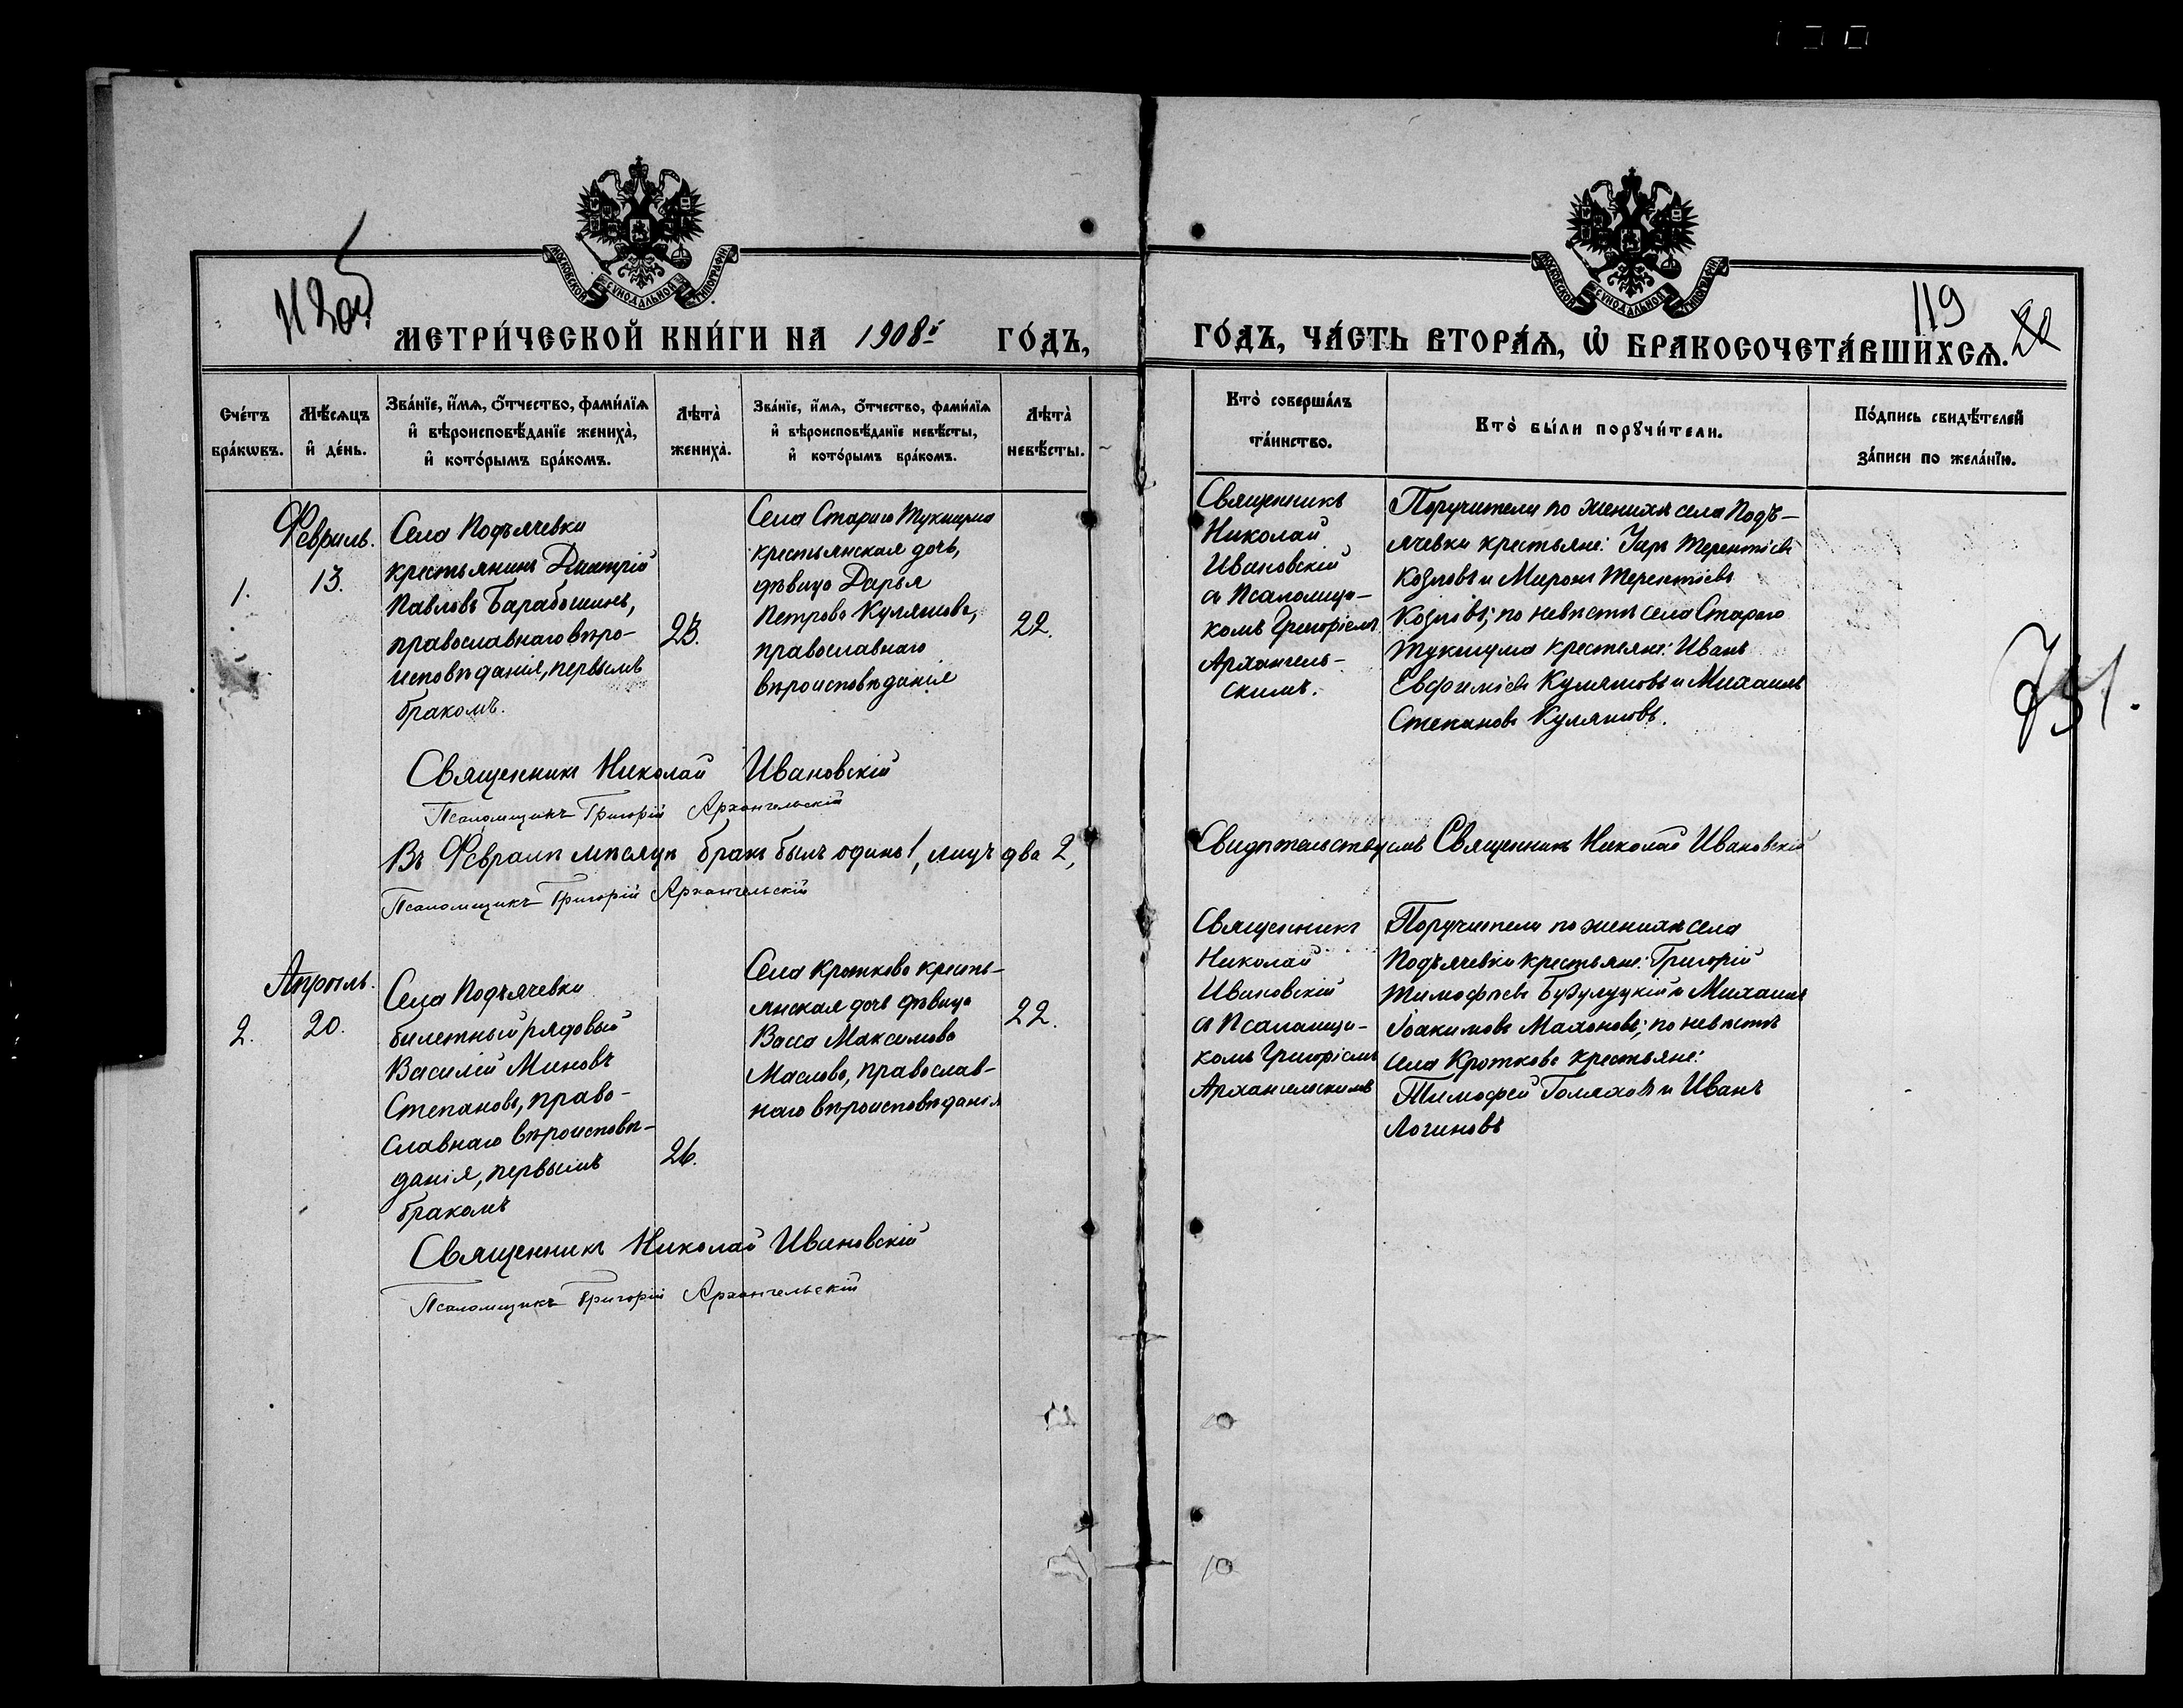 МОСКОВСКОЙ СѴНОДАЛЬНОЙ ТИПОГРАФІИ
МЕТРИ́ЧЕСКОЙ КНИ́ГИ НА 1908й ГО́ДЪ,
Сче́тъ бра́кωвъ.
Мѣ́сяцъ и҆ де́нь.
Зва́нїе, и҆́мѧ, ѻ҆́тчество, фами́лїѧ
и҆ вѣроисповѣ́данїе жениха̀,
и҆ кото́рымъ бра́комъ.
Лѣта̀ жениха̀.
Зва́нїе, и҆́мѧ, ѻ҆́тчество, фами́лїѧ
и҆ вѣроисповѣ́данїе невѣ́сты,
и҆ кото́рымъ бра́комъ.
Лѣта̀ невѣ́сты.
Февраль.
1.
13.
Села Подъячевки
крестьянинъ Димитрій
Павловъ Барабошинъ,
православнаго вѣро-
исповѣданія, первымъ
бракомъ.
23.
Села Стараго Тукшума
крестьянская дочь,
дѣвица Дарья
Петрова Куляшова,
православнаго
вѣроисповѣданія
22.
Священникъ Николай Ивановскій
Псаломщикъ Григорій Архангельскій
Въ Февралѣ мѣсяцѣ бракъ былъ одинъ 1, лицъ два 2,
Псаломщикъ Григорій Архангельскій
Апрѣль.
2.
20.
Села Подъячевки
билетный рядовый
Василій Миновъ
Степановъ, право-
славнаго вѣроисповѣ-
данія, первымъ
бракомъ
26.
Села Кротково кресть-
янская дочь дѣвица
Васса Максимова
Маслова, православ-
наго вѣроисповѣданія
22.
Священникъ Николай Ивановскій
Псаломщикъ Григорій Архангельскій
МОСКОВСКОЙ СѴНОДАЛЬНОЙ ТИПОГРАФІИ
119
20
ГО́ДЪ, ЧА́СТЬ ВТОРА́Ѧ, Ѽ БРАКОСОЧЕТА́ВШИХСѦ.
Кто̀ соверша́лъ
та́инство.
Кто̀ бы́ли порꙋчи́тели.
По́дпись свидѣ́телей
за́писи по жела́нїю.
Священникъ
Николай
Ивановскій
съ Псаломщи-
комъ Григоріемъ
Архангель-
скимъ.
Поручители по женихѣ села Подъ-
ячевки крестьяне: Уаръ Терентіевъ
Козловъ и Миронъ Терентіевъ
Козловъ; по невѣстѣ села Стараго
Тукшума крестьяне: Иванъ
Евфиміевъ Куляшовъ и Михаилъ
Степановъ Куляшовъ.
751.
Свидѣтельствуемъ Священникъ Николай Ивановскій
Священникъ
Николай
Ивановскій
съ Псаломщи-
комъ Григоріемъ
Архангельскимъ
Поручители по женихѣ села
Подъячевки крестьяне: Григорій
Тимофѣевъ Бузулуцкій и Михаилъ
Іоакимовъ Махоновъ; по невѣстѣ
села Кроткова крестьяне:
Тимофей Голяховъ и Иванъ
Логиновъ